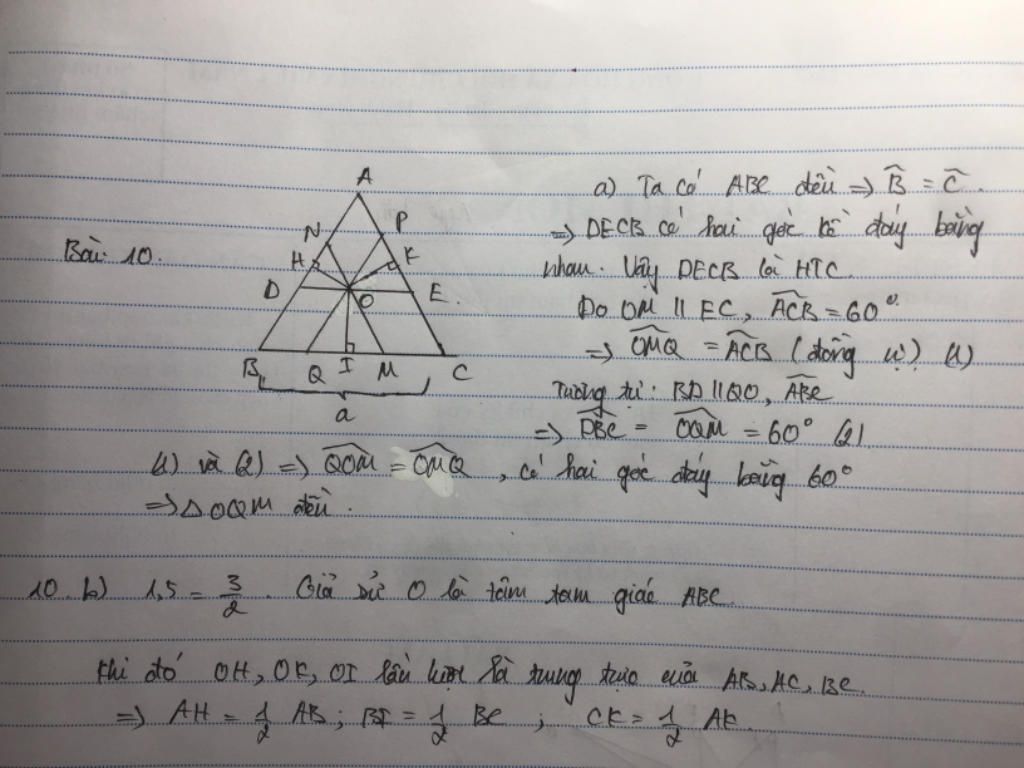 Bài 10.
A
N
P
H
K
D
O
E.
B
Q
I
M
C
a
a) Ta có ABC đều ⇒ B̂ = Ĉ.
⇒ DECB có hai góc kề đáy bằng
nhau. Vậy DECB là HTC.
Do OM // EC, \widehat{ACB} = 60°
⇒ \widehat{OMQ} = \widehat{ACB} (đồng vị) (1)
Tương tự: BD // QO, \widehat{ABC}
⇒ \widehat{DBC} = \widehat{OQM} = 60° (2)
(1) và (2) ⇒ \widehat{QOM} = \widehat{OMQ}, có hai góc đáy bằng 60°
⇒ △OQM đều.
10. b) 1,5 = 3/2. Giả sử O là tâm tam giác ABC.
Khi đó OH, OK, OI lần lượt là trung trực của AB, AC, BC.
⇒ AH = 1/2 AB; BI = 1/2 BC; CK = 1/2 AK.